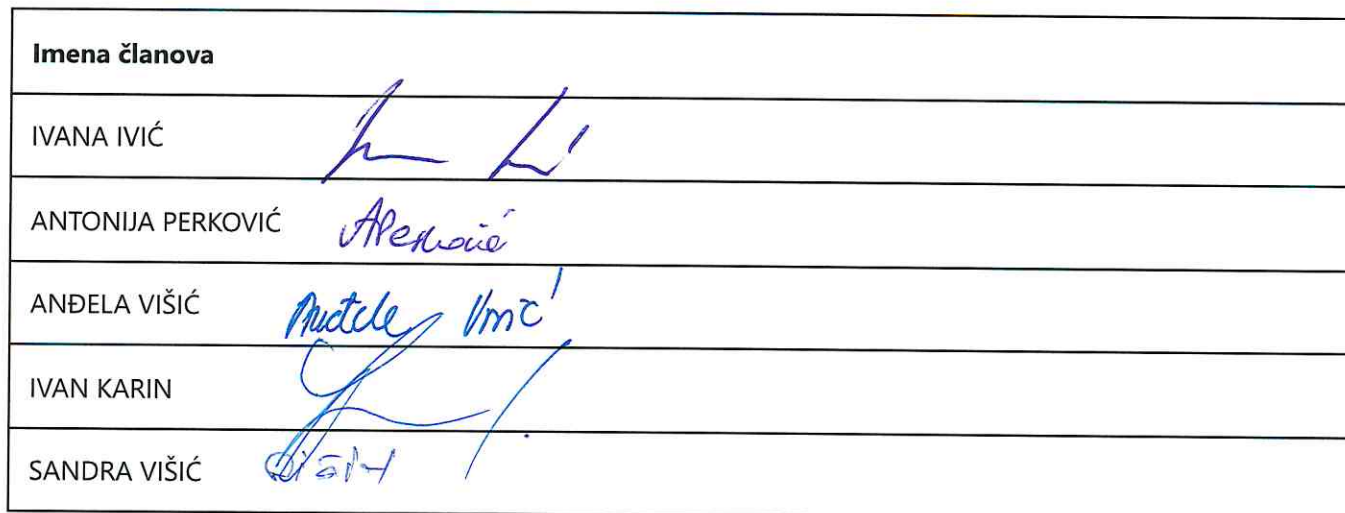 Imena članova
IVANA IVIĆ
ANTONIJA PERKOVIĆ APerković
ANĐELA VIŠIĆ
IVAN KARIN
SANDRA VIŠIĆ